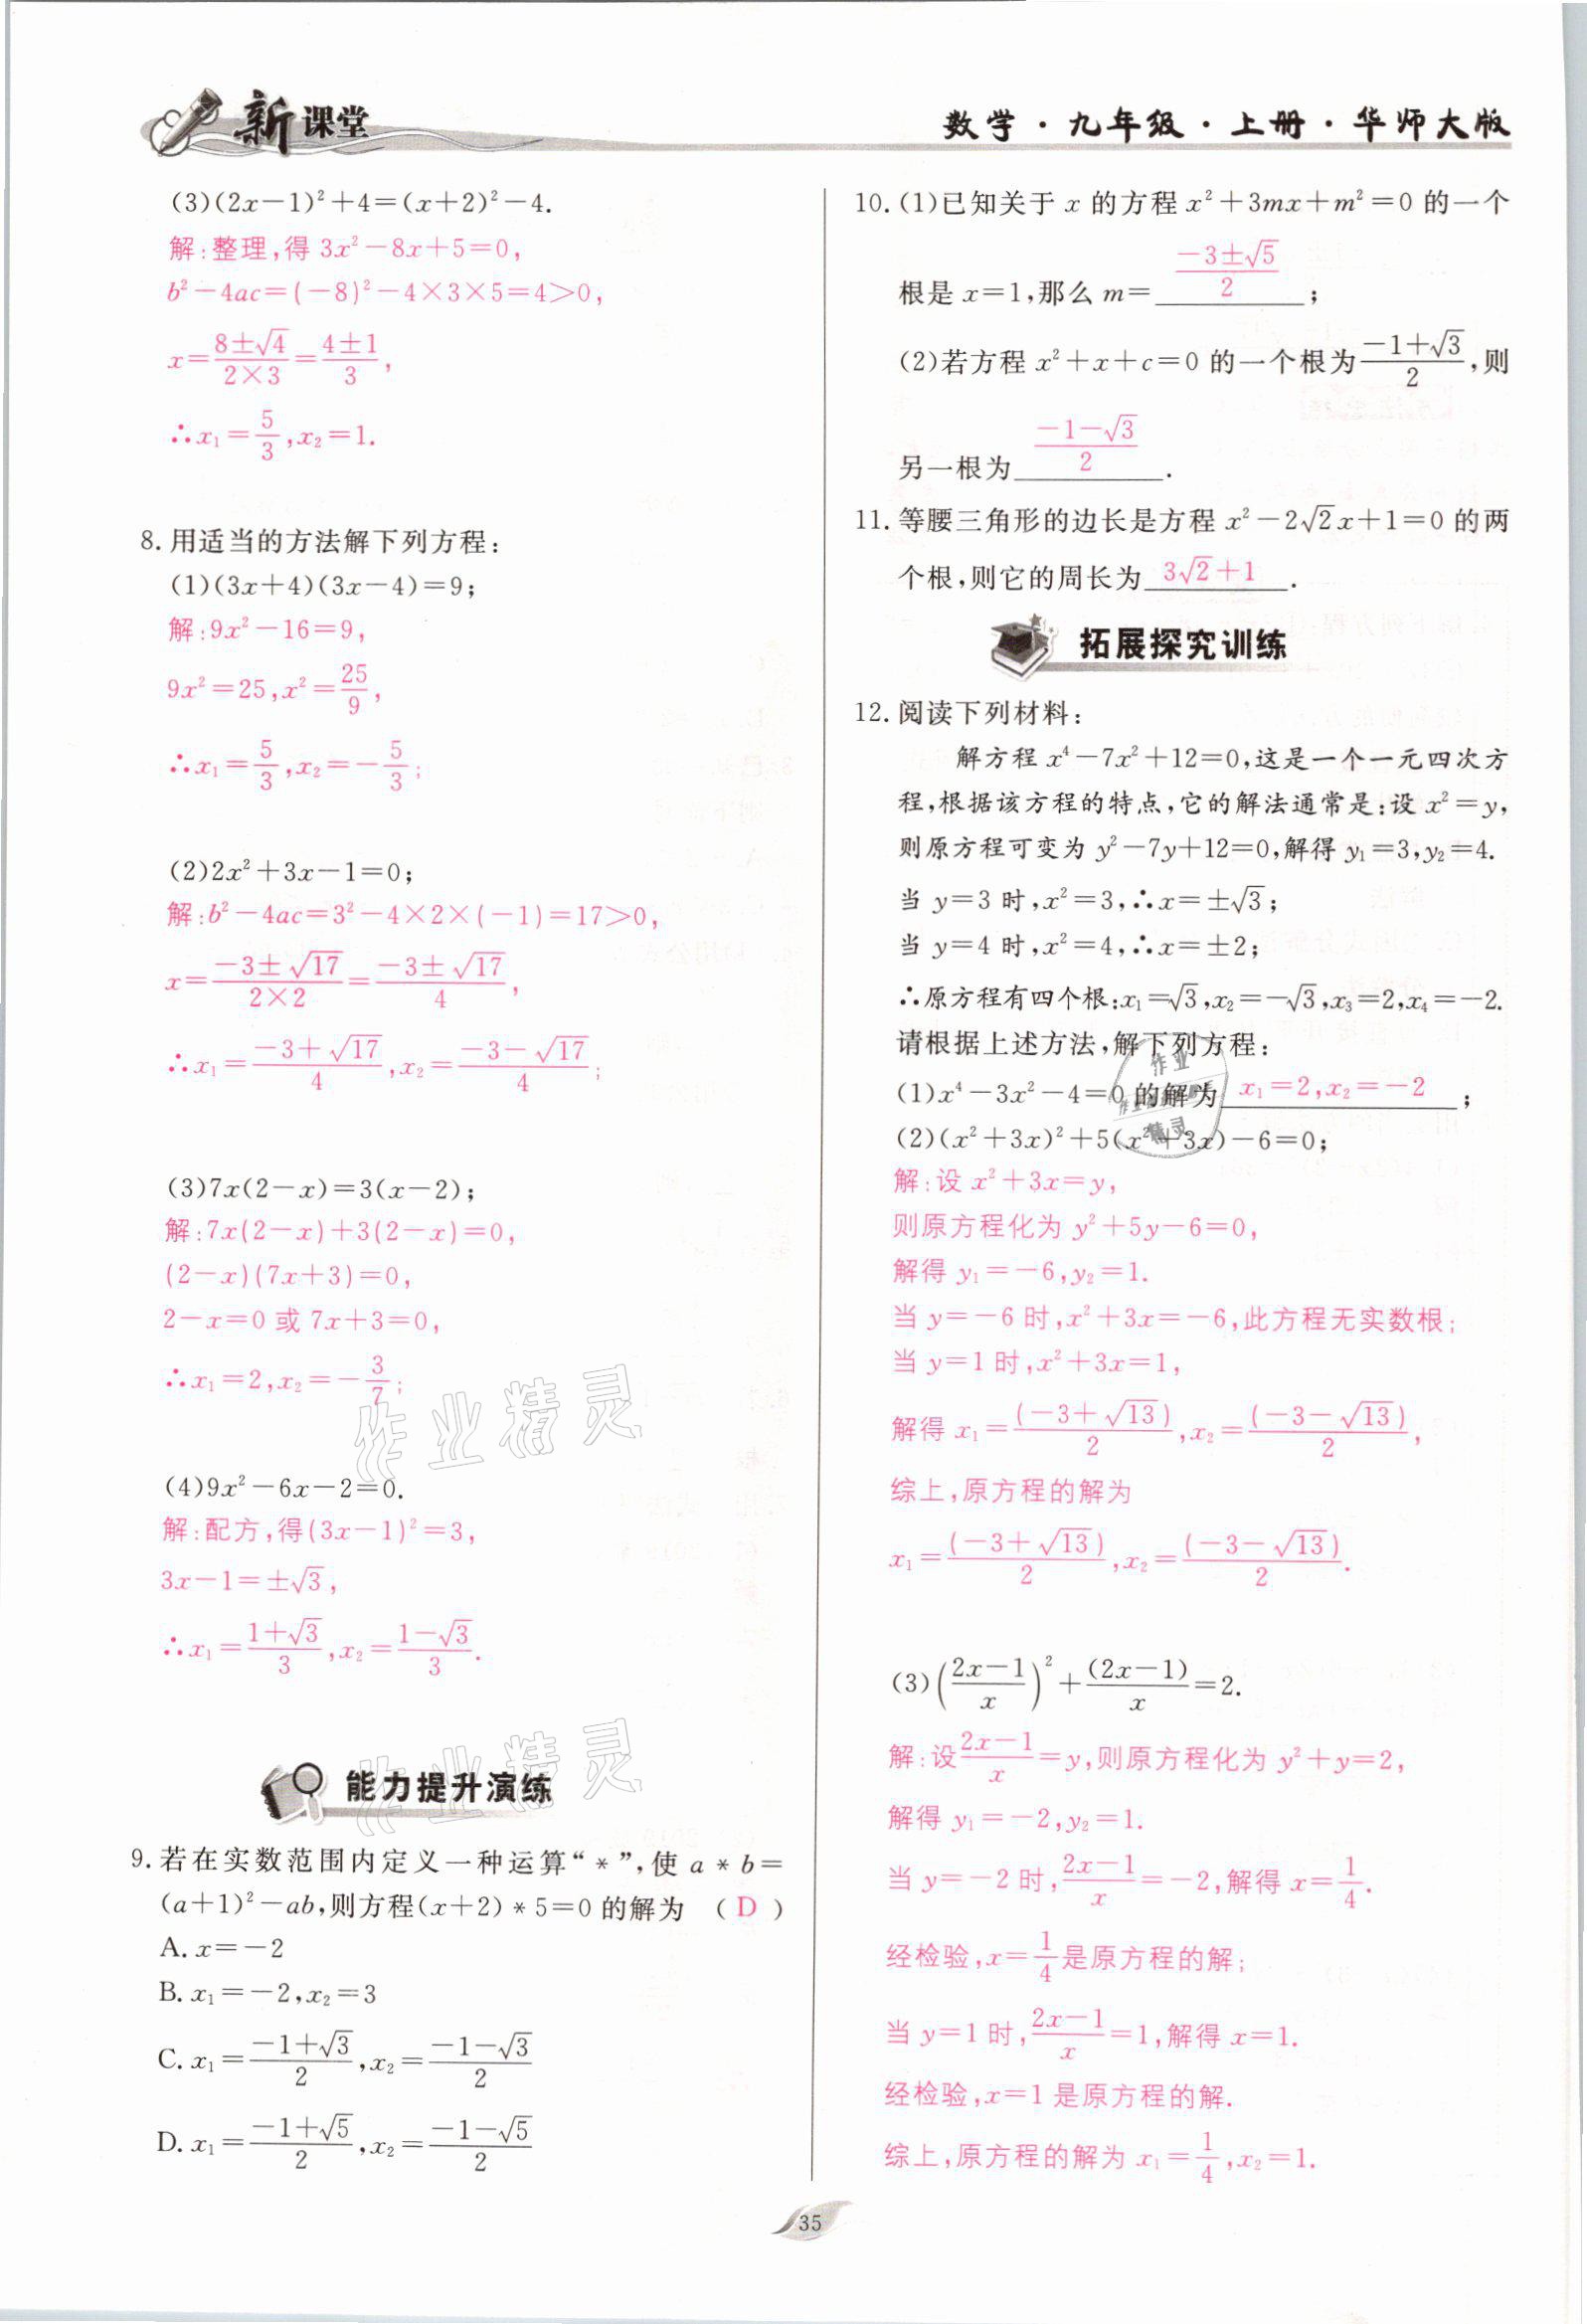 新课堂
数学·九年级·上册·华师大版
(3)(2x-1)²+4=(x+2)²-4.
解:整理,得 3x²-8x+5=0,
b²-4ac=(-8)²-4×3×5=4>0,
x=(8±√4)/(2×3)=(4±1)/3,
∴x₁=5/3,x₂=1.
8.用适当的方法解下列方程:
(1)(3x+4)(3x-4)=9;
解:9x²-16=9,
9x²=25,x²=25/9,
∴x₁=5/3,x₂=-5/3;
(2)2x²+3x-1=0;
解:b²-4ac=3²-4×2×(-1)=17>0,
x=(-3±√17)/(2×2)=(-3±√17)/4,
∴x₁=(-3+√17)/4,x₂=(-3-√17)/4;
(3)7x(2-x)=3(x-2);
解:7x(2-x)+3(2-x)=0,
(2-x)(7x+3)=0,
2-x=0 或 7x+3=0,
∴x₁=2,x₂=-3/7;
(4)9x²-6x-2=0.
解:配方,得(3x-1)²=3,
3x-1=±√3,
∴x₁=(1+√3)/3,x₂=(1-√3)/3.
作业精灵
作业精灵
能力提升演练
9.若在实数范围内定义一种运算“*”,使 a*b=
(a+1)²-ab,则方程(x+2)*5=0 的解为 (D)
A.x=-2
B.x₁=-2,x₂=3
C.x₁=(-1+√3)/2,x₂=(-1-√3)/2
D.x₁=(-1+√5)/2,x₂=(-1-√5)/2
10.(1)已知关于 x 的方程 x²+3mx+m²=0 的一个
根是 x=1,那么 m=(-3±√5)/2;
(2)若方程 x²+x+c=0 的一个根为(-1+√3)/2,则
另一根为(-1-√3)/2.
11.等腰三角形的边长是方程 x²-2√2x+1=0 的两
个根,则它的周长为 3√2+1.
拓展探究训练
12.阅读下列材料:
解方程 x⁴-7x²+12=0,这是一个一元四次方
程,根据该方程的特点,它的解法通常是:设 x²=y,
则原方程可变为 y²-7y+12=0,解得 y₁=3,y₂=4.
当 y=3 时,x²=3,∴x=±√3;
当 y=4 时,x²=4,∴x=±2;
∴原方程有四个根:x₁=√3,x₂=-√3,x₃=2,x₄=-2.
请根据上述方法,解下列方程:
(1)x⁴-3x²-4=0 的解为 x₁=2,x₂=-2;
(2)(x²+3x)²+5(x²+3x)-6=0;
解:设 x²+3x=y,
则原方程化为 y²+5y-6=0,
解得 y₁=-6,y₂=1.
当 y=-6 时,x²+3x=-6,此方程无实数根;
当 y=1 时,x²+3x=1,
解得 x₁=(-3+√13)/2,x₂=(-3-√13)/2,
综上,原方程的解为
x₁=(-3+√13)/2,x₂=(-3-√13)/2.
(3)((2x-1)/x)²+(2x-1)/x=2.
解:设(2x-1)/x=y,则原方程化为 y²+y=2,
解得 y₁=-2,y₂=1.
当 y=-2 时,(2x-1)/x=-2,解得 x=1/4.
经检验,x=1/4是原方程的解;
当 y=1 时,(2x-1)/x=1,解得 x=1.
经检验,x=1 是原方程的解.
综上,原方程的解为 x₁=1/4,x₂=1.
35